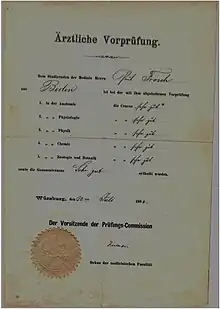 Ärztliche Vorprüfung.
Dem Studierenden der Medizin Herrn Paul Frosch
aus Berlin ist bei der mit ihm abgehaltenen Vorprüfung
1. in der Anatomie die Censur „sehr gut“
2. „ Physiologie „ „ sehr gut
3. „ Physik „ „ sehr gut
4. „ Chemie „ „ sehr gut
5. „ Zoologie und Botanik „ „ sehr gut
sowie die Gesammtcensur Sehr gut ertheilt worden.
Würzburg, den
Der Vorsitzende der Prüfungs-Commission
Dekan der medicinischen Facultät